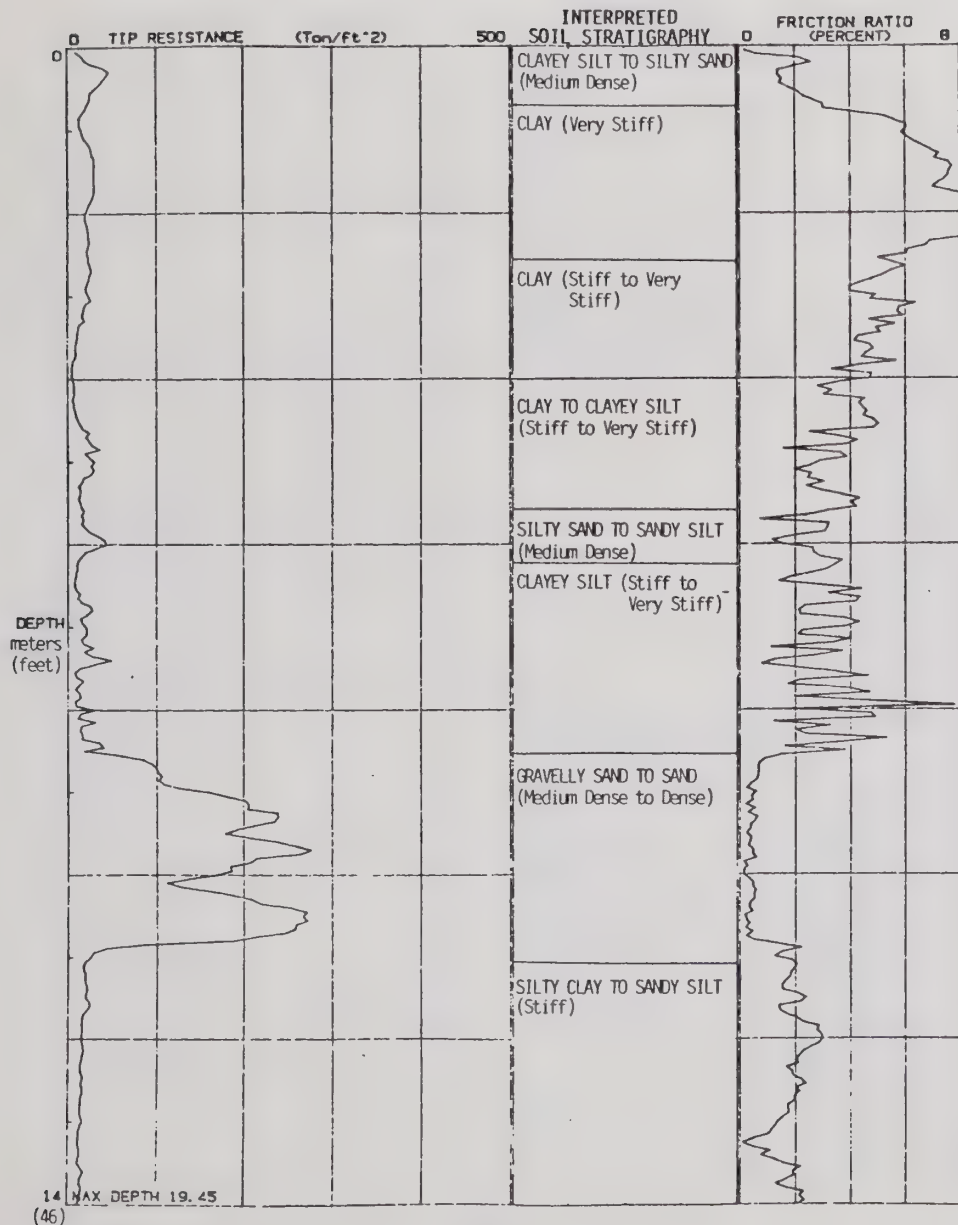 0 TIP RESISTANCE (Ton/ft^2) 500
INTERPRETED
SOIL STRATIGRAPHY
FRICTION RATIO
0 (PERCENT) 8
0
CLAYEY SILT TO SILTY SAND
(Medium Dense)
CLAY (Very Stiff)
CLAY (Stiff to Very
Stiff)
CLAY TO CLAYEY SILT
(Stiff to Very Stiff)
SILTY SAND TO SANDY SILT
(Medium Dense)
CLAYEY SILT (Stiff to
Very Stiff)
DEPTH
meters
(feet)
GRAVELLY SAND TO SAND
(Medium Dense to Dense)
SILTY CLAY TO SANDY SILT
(Stiff)
14 MAX DEPTH 19.45
(46)